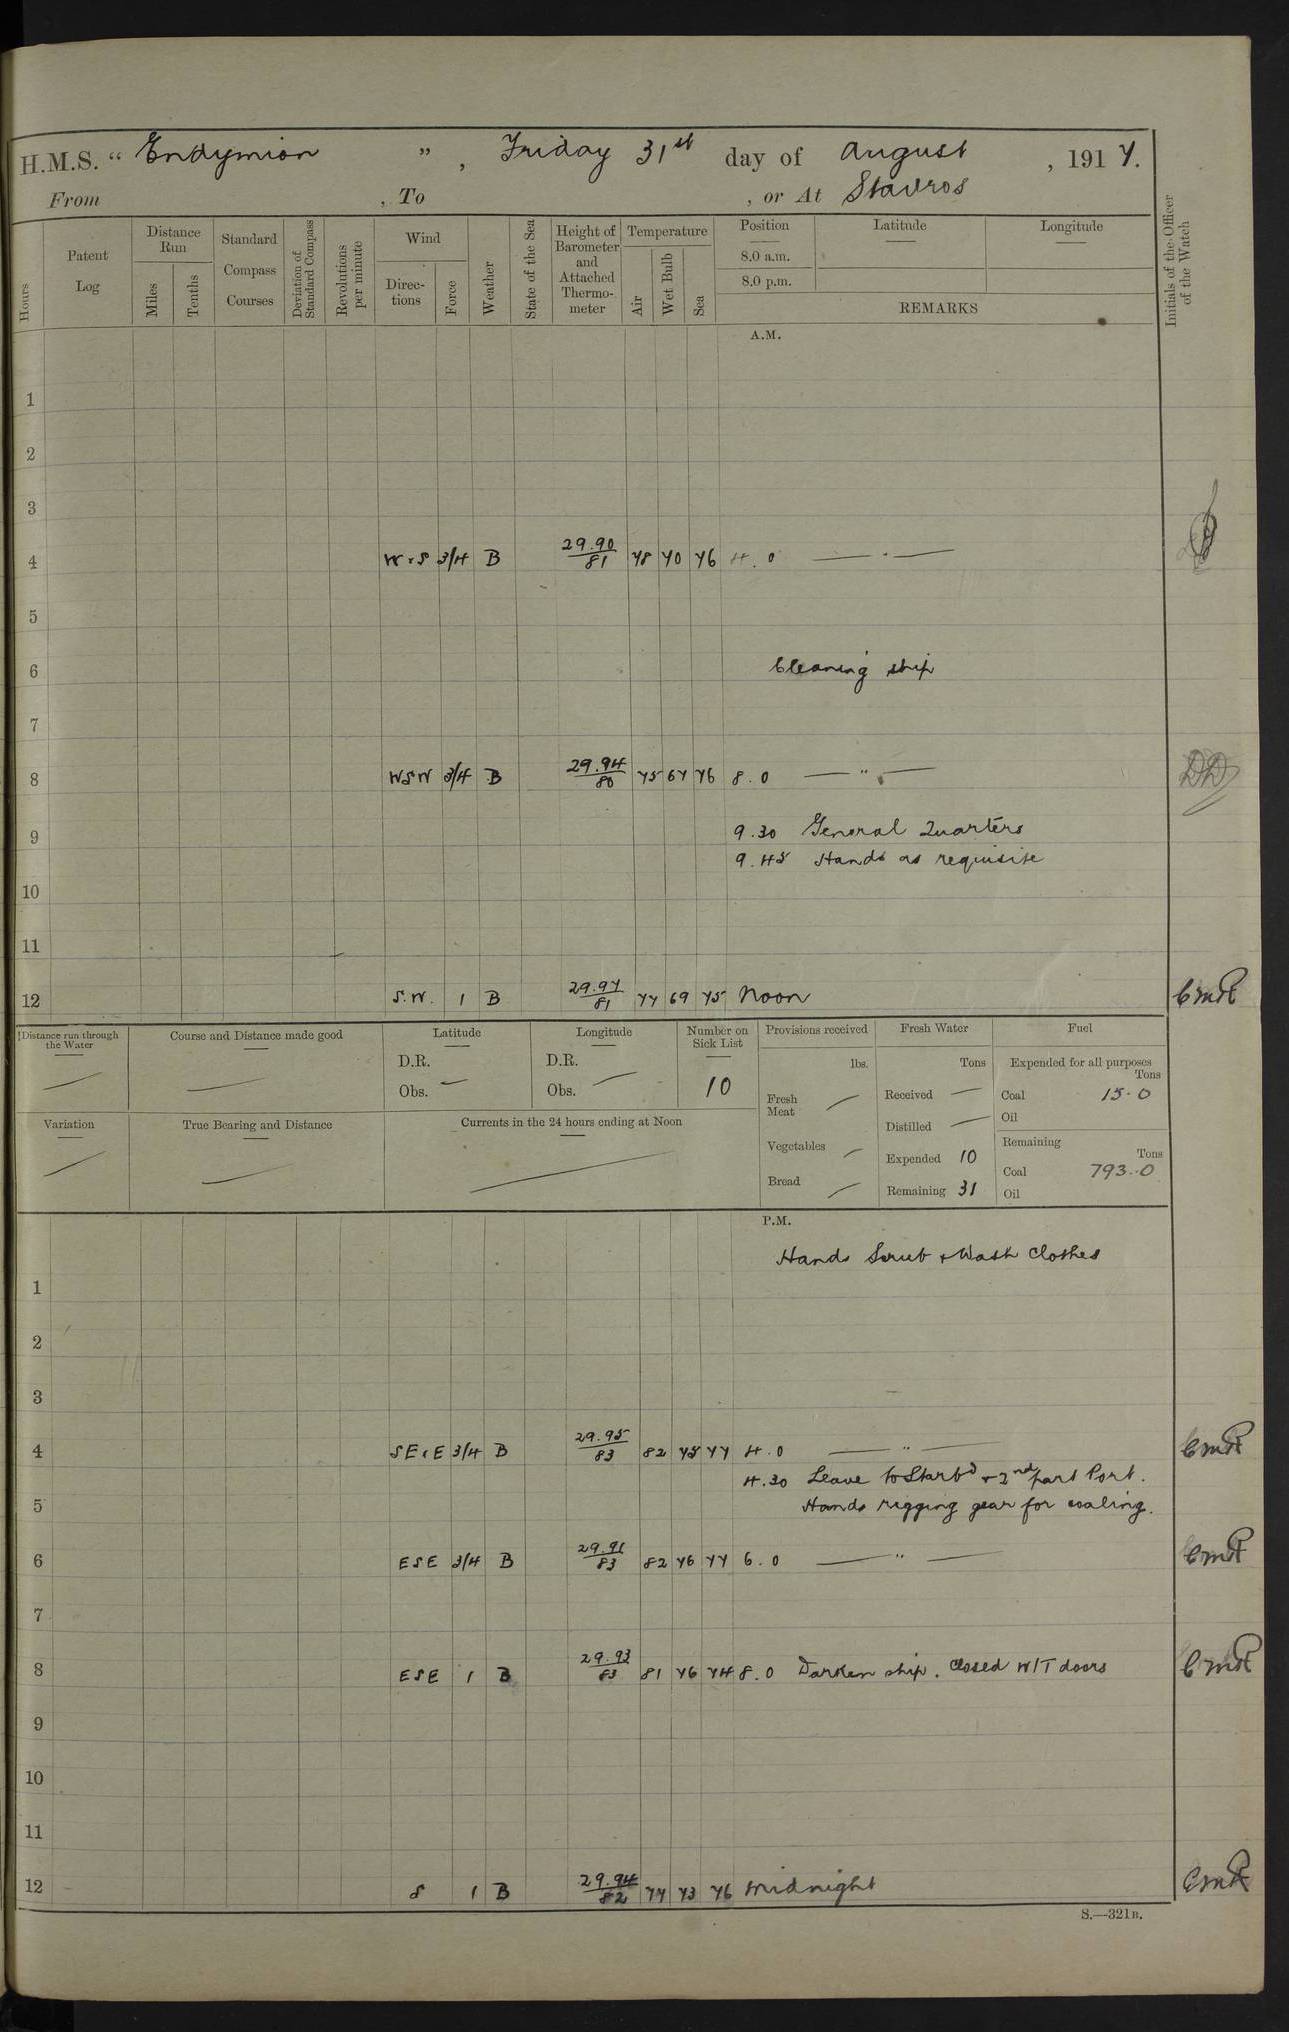 H.M.S. " Endymion ", Friday 31st day of August, 1917.
From , To , or At Stavros
Hours
Patent Log
Distance Run
Miles
Tenths
Standard Compass Courses
Deviation of Standard Compass
Revolutions per minute
Wind
Directions
Force
Weather
State of the Sea
Height of Barometer and Attached Thermometer
Temperature
Air
Wet Bulb
Sea
Position
8.0 a.m.
8.0 p.m.
Latitude
Longitude
REMARKS
Initials of the Officer of the Watch
A.M.
1
2
3
4 W·S 3/4 B 29.90/81 78 70 76 4.0 — " —
5
6 Cleaning ship
7
8 WSW 3/4 B 29.94/80 75 67 76 8.0 — " — DD
9 9.30 General Quarters
9.45 Hands as requisite
10
11
12 S.W. 1 B 29.97/81 77 69 75 Noon CmR
Distance run through the Water —
Course and Distance made good —
Latitude
D.R.
Obs. —
Longitude
D.R.
Obs. —
Number on Sick List
10
Provisions received
lbs.
Fresh Meat —
Vegetables —
Bread —
Fresh Water
Tons
Received —
Distilled —
Expended 10
Remaining 31
Fuel
Expended for all purposes
Tons
Coal 15.0
Oil
Remaining
Tons
Coal 793.0
Oil
Variation —
True Bearing and Distance —
Currents in the 24 hours ending at Noon —
P.M.
Hands Scrub + Wash Clothes
1
2
3
4 SE·E 3/4 B 29.95/83 82 75 77 4.0 — " — CmR
4.30 Leave to Starbd + 2nd part Port.
5 Hands rigging gear for coaling.
6 ESE 3/4 B 29.91/83 82 76 77 6.0 — " — CmR
7
8 ESE 1 B 29.93/83 81 76 74 8.0 Darken ship. Closed W/T doors CmR
9
10
11
12 S 1 B 29.94/82 77 73 76 Midnight CmR
S.—321B.